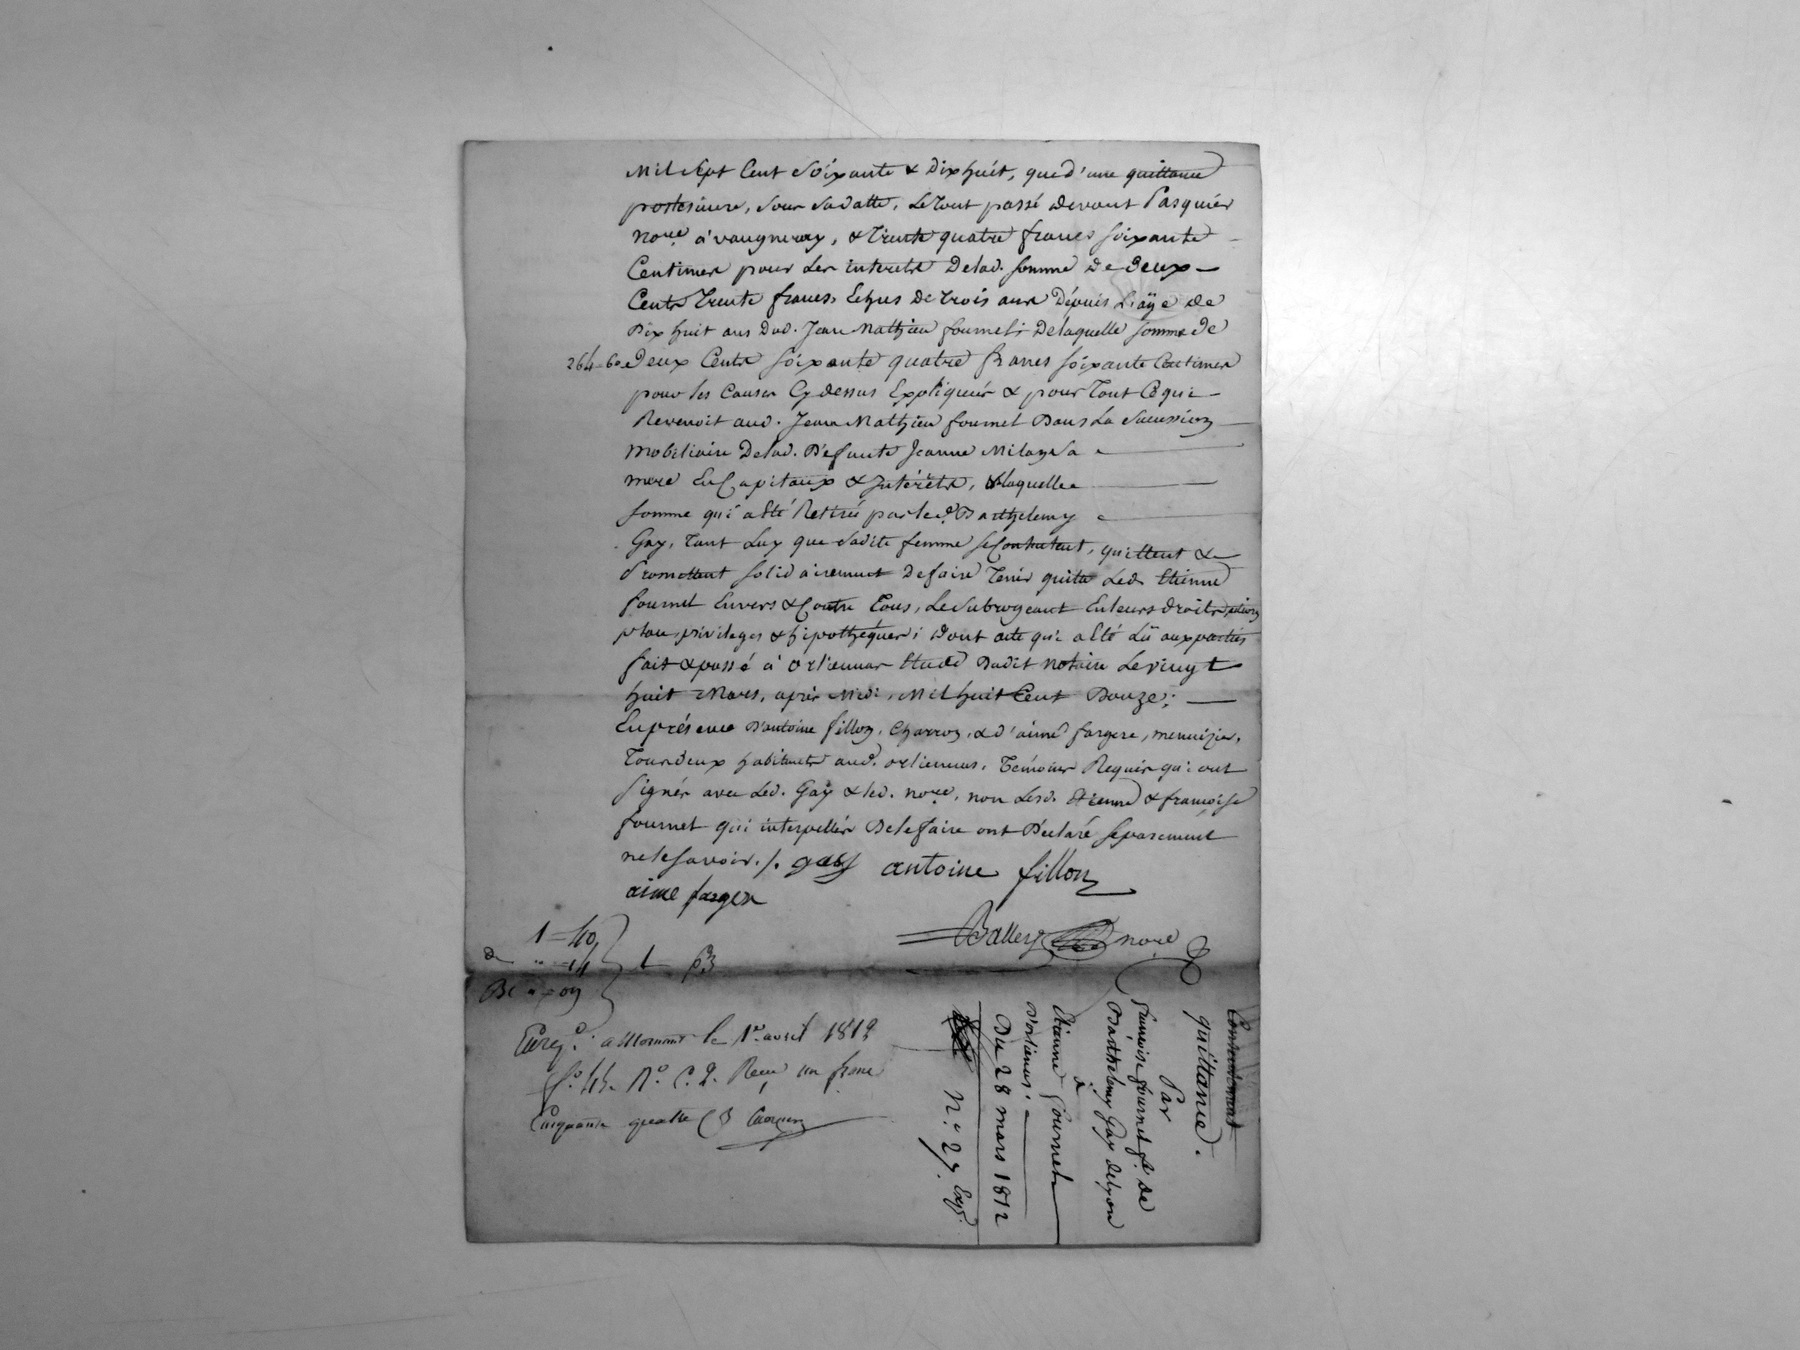 Mil Sept Cent Soixante & Dixhuit, que d'une quittance
postérieure, sour sadatte, Le tout passé devant Pasquier
no.re à vaugneray, & Trente quatre francs soixante
Centimes pour Les interets Delad. somme de deux
Cents Trente francs, Echus de trois ans Dépuis L'aÿe de
Dix huit ans Dud. Jean Mathieu fournel; Delaquelle somme de
264=60 deux Cents soixante quatre francs soixante Centimes
pour les Causes Cy dessus Expliqués & pour Tout Cequi
Revenoit aud. Jean Mathieu fournel Dans La Succession
Mobiliaire Delad. Defunte Jeanne Milan Sa
mere En Capitaux & Interets, laquelle
somme qui a Eté Retirée par led. Barthelemy
Gay, Tant Luy que Sadite femme se Contentent, quittent &
Promettent solidairement De faire Tenir quitte Led. Etienne
fournel Envers & Contre Tous, Le Subrogeant En leurs droits, actions
privileges & hipothéques; Dont acte qui a Eté Lû aux parties
fait & passé à Orliennas Etude Dudit Notaire Levingt
huit Mars, après Midi, Mil huit Cent Douze;
En présence D'antoine fillon, Charron, & d'aimé fargere, menuizier,
Tous deux habitants aud. orliennas, Temoins Requis qui ont
signés avec Led. Gaÿ & led. no.re, non Lesd. Etienne & françoise
fournel qui interpellés De le faire ont Déclaré separement
ne le savoir./. gay antoine fillon
aime farger
Balley no.re
1=40
1
Enreg.é à Mornant le 1.er avril 1812
f.o R.o C. 2. Reçu un franc
Cinquante quatre C
quittance.
Par
françoise fournel f.e de
Barthelemy Gay de Lyon
à
Etienne fournel
D'orliennas.
Du 28 mars 1812
N.o 27. Exp.